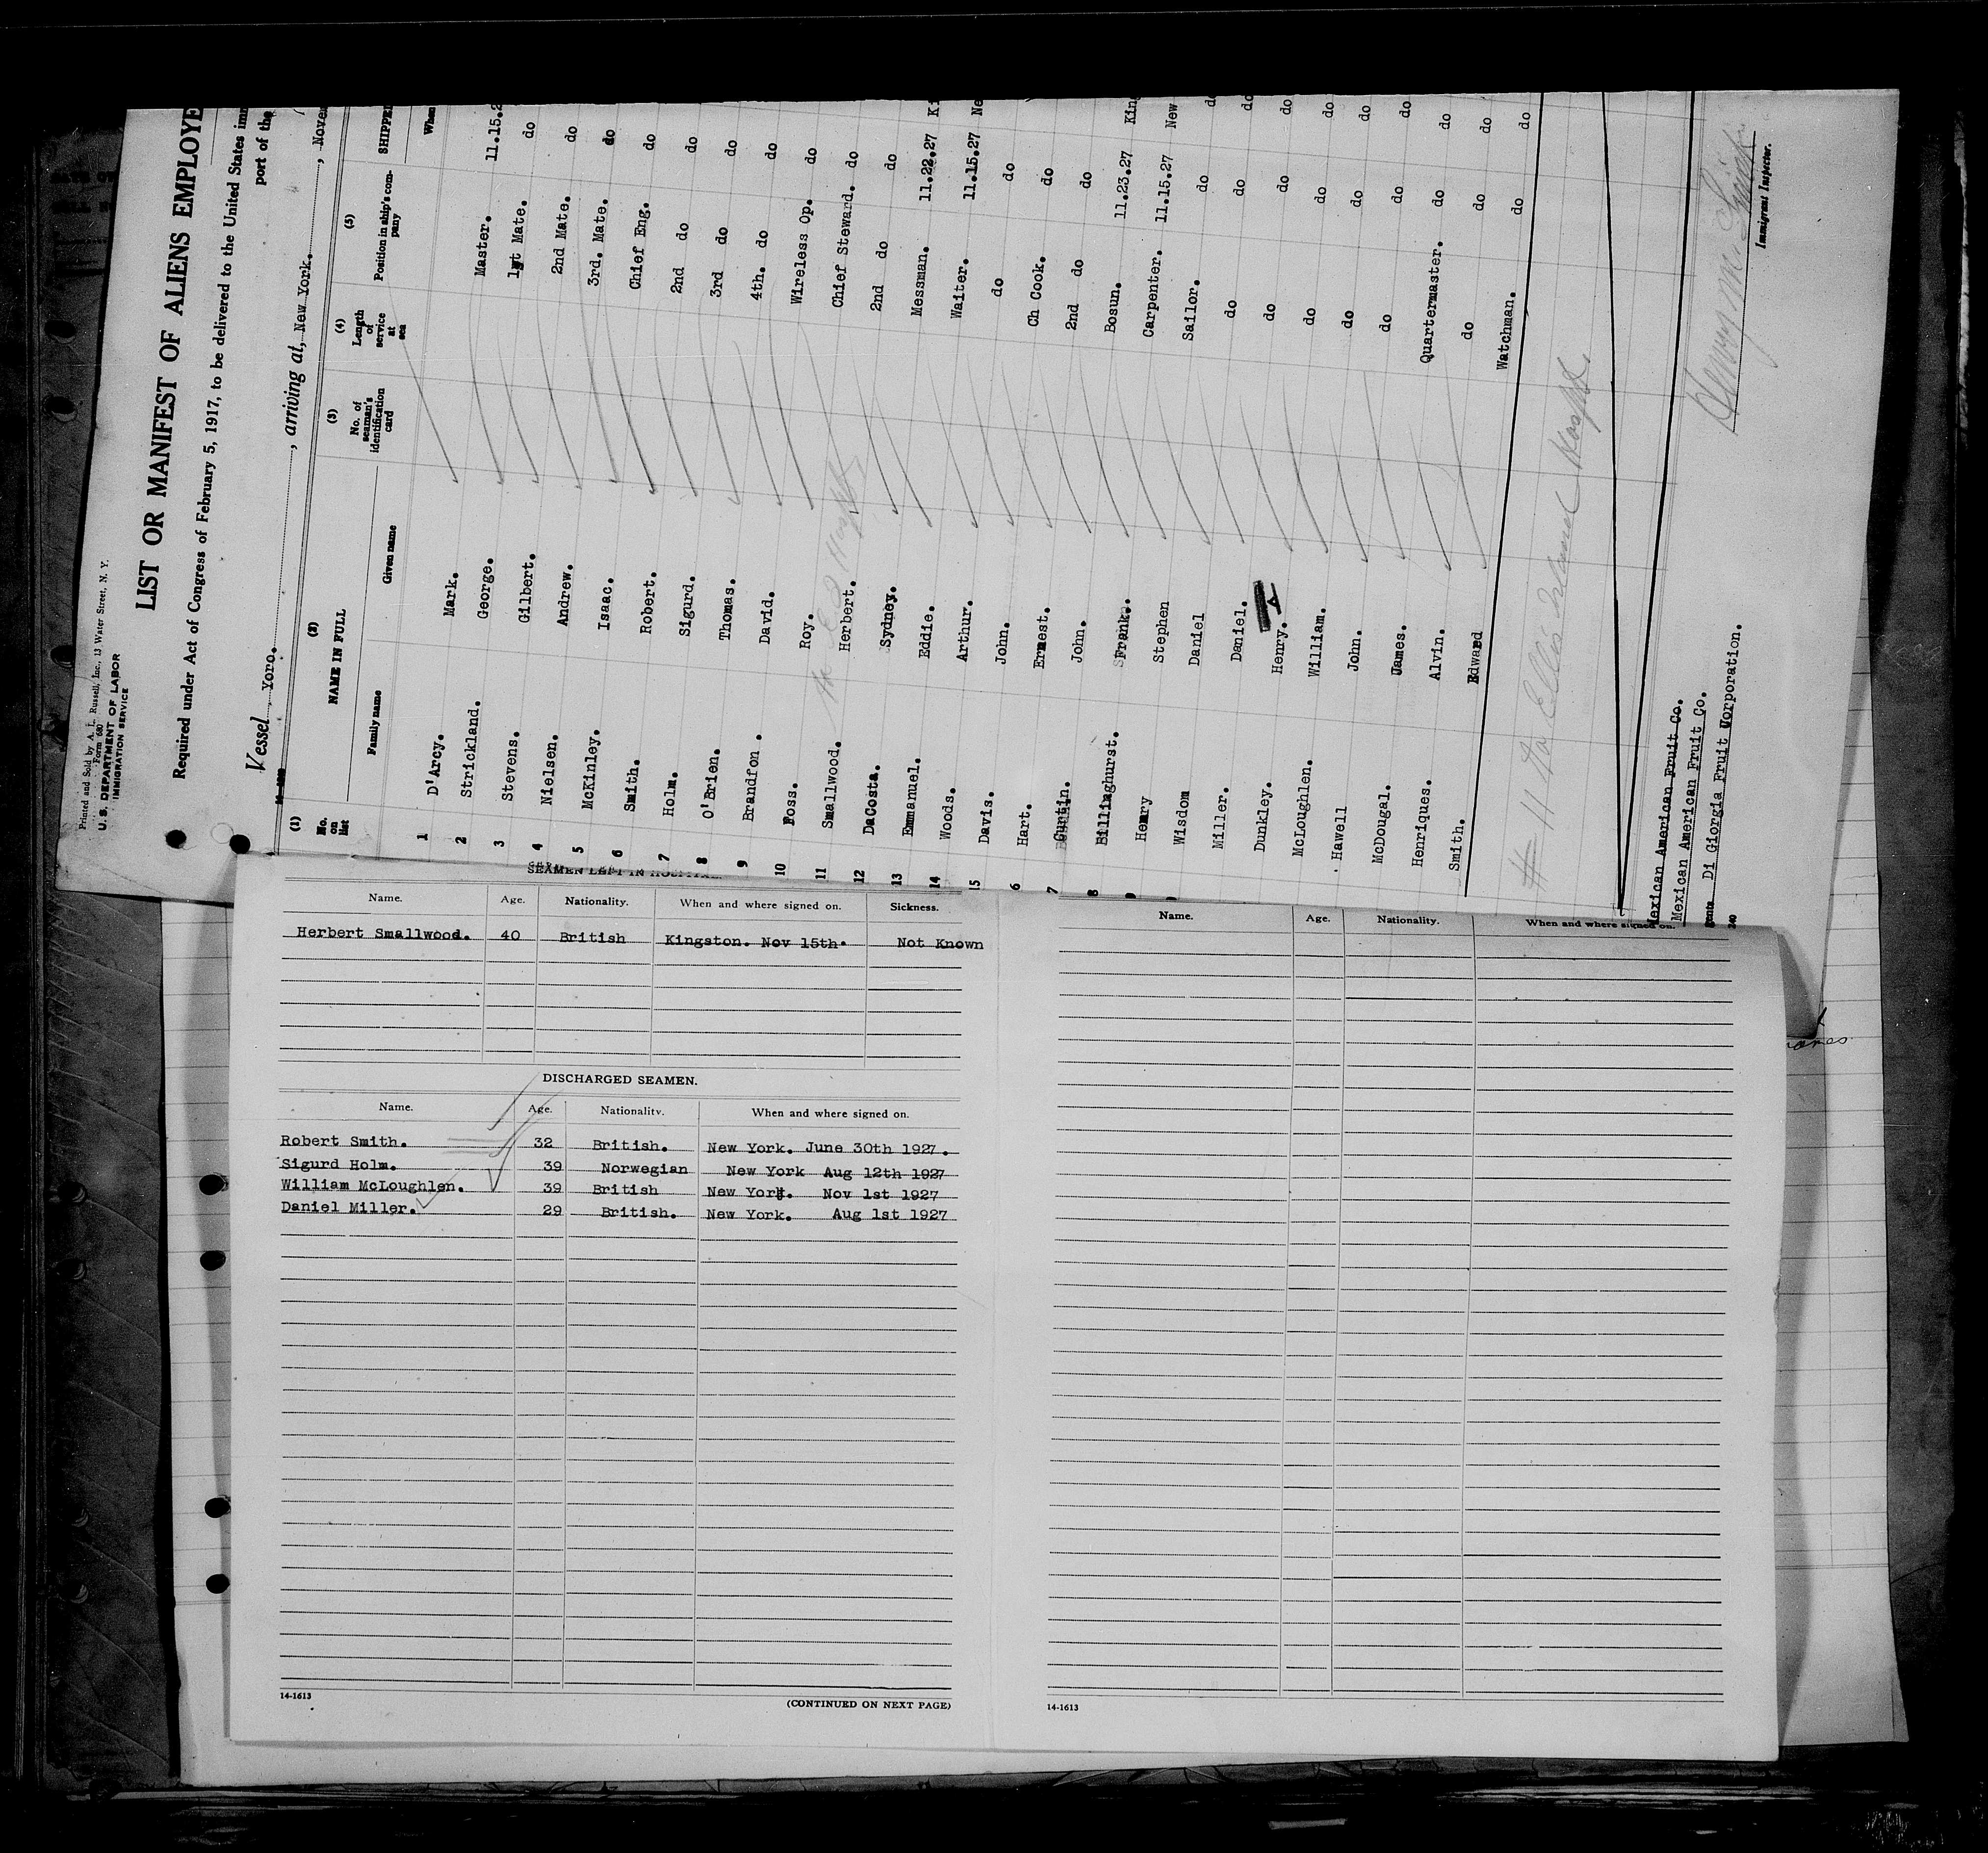 Printed and Sold by A. L. Russell, Inc., 13 Water Street, N. Y.
Form 680
U. S. DEPARTMENT OF LABOR
IMMIGRATION SERVICE
LIST OR MANIFEST OF ALIENS EMPLOYE
Required under Act of Congress of February 5, 1917, to be delivered to the United States imm
port of the
Vessel Yoro. , arriving at, New York. , Nove
(1) (2) (3) (4) (5)
No. on list NAME IN FULL No. of seaman's identification card Length of service at sea Position in ship's company SHIPPE
Family name Given name When
1 D'Arcy. Mark. Master. 11.15.2
2 Strickland. George. 1st Mate. do
3 Stevens. Gilbert. 2nd Mate. do
4 Nielsen. Andrew. 3rd. Mate. do
5 McKinley. Isaac. Chief Eng. do
6 Smith. Robert. 2nd do do
7 Holm. Sigurd. 3rd do do
8 O'Brien. Thomas. 4th. do do
9 Brandfon. David. Wireless Op. do
10 Foss. Roy. Chief Steward. do
11 Smallwood. Herbert. 2nd do do
12 DaCosta. Sydney. Messman. 11.22.27 Ki
13 Emmanuel. Eddie. Waiter. 11.15.27 Ne
14 Woods. Arthur. do do
15 Davis. John. Ch Cook. do
6 Hart. Ernest. 2nd do do
7 Curtin. John. Bosun. 11.23.27 Kin
8 Billinghurst. Frank. Carpenter. 11.15.27 New
9 Henry Stephen Sailor. do do
Wisdom Daniel do do do
Miller. Daniel. do do do
Dunkley. Henry. do do do
McLoughlen. William. do do do
Hawell John. do do do
McDougal. James. Quartermaster. do do
Henriques. Alvin. do do do
Smith. Edward Watchman. do do
# 11 To Ellis Island Hospt.
Mexican American Fruit Co.
Mexican American Fruit Co.
Di Giorgia Fruit Corporation.
Immigrant Inspector.
SEAMEN LEFT IN HOSPITAL
Name. Age. Nationality. When and where signed on. Sickness.
Herbert Smallwood. 40 British Kingston. Nov 15th. Not Known
DISCHARGED SEAMEN.
Name. Age. Nationality. When and where signed on.
Robert Smith. 32 British. New York. June 30th 1927.
Sigurd Holm. 39 Norwegian New York Aug 12th 1927
William McLoughlen. 39 British New York. Nov 1st 1927
Daniel Miller. 29 British. New York. Aug 1st 1927
14-1613
(CONTINUED ON NEXT PAGE)
Name. Age. Nationality. When and where signed on.
14-1613